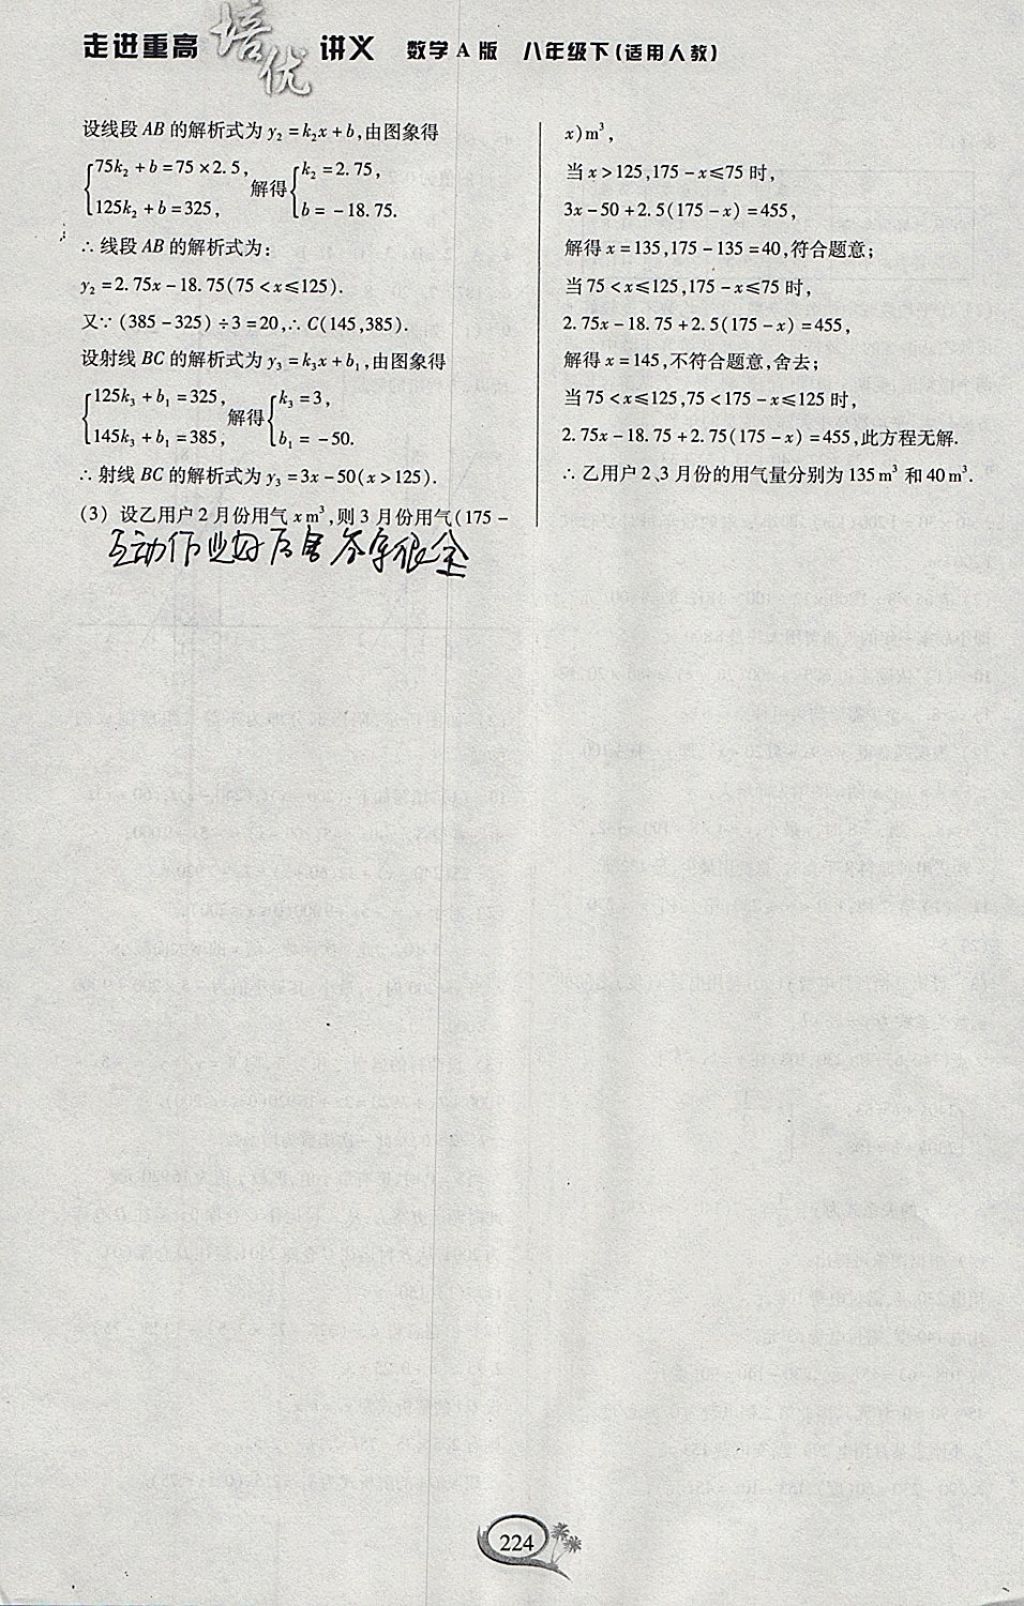 走进重高培优讲义 数学A版 八年级下(适用人教)
设线段AB的解析式为y₂=k₂x+b,由图象得
{75k₂+b=75×2.5, 125k₂+b=325, 解得{k₂=2.75, b=-18.75.
∴线段AB的解析式为:
y₂=2.75x-18.75(75<x≤125).
又∵(385-325)÷3=20,∴C(145,385).
设射线BC的解析式为y₃=k₃x+b₁,由图象得
{125k₃+b₁=325, 145k₃+b₁=385, 解得{k₃=3, b₁=-50.
∴射线BC的解析式为y₃=3x-50(x>125).
(3) 设乙用户2月份用气xm³,则3月份用气(175-
互动作业好厉害答案很全
x)m³,
当x>125,175-x≤75时,
3x-50+2.5(175-x)=455,
解得x=135,175-135=40,符合题意;
当75<x≤125,175-x≤75时,
2.75x-18.75+2.5(175-x)=455,
解得x=145,不符合题意,舍去;
当75<x≤125,75<175-x≤125时,
2.75x-18.75+2.75(175-x)=455,此方程无解.
∴乙用户2、3月份的用气量分别为135m³和40m³.
224